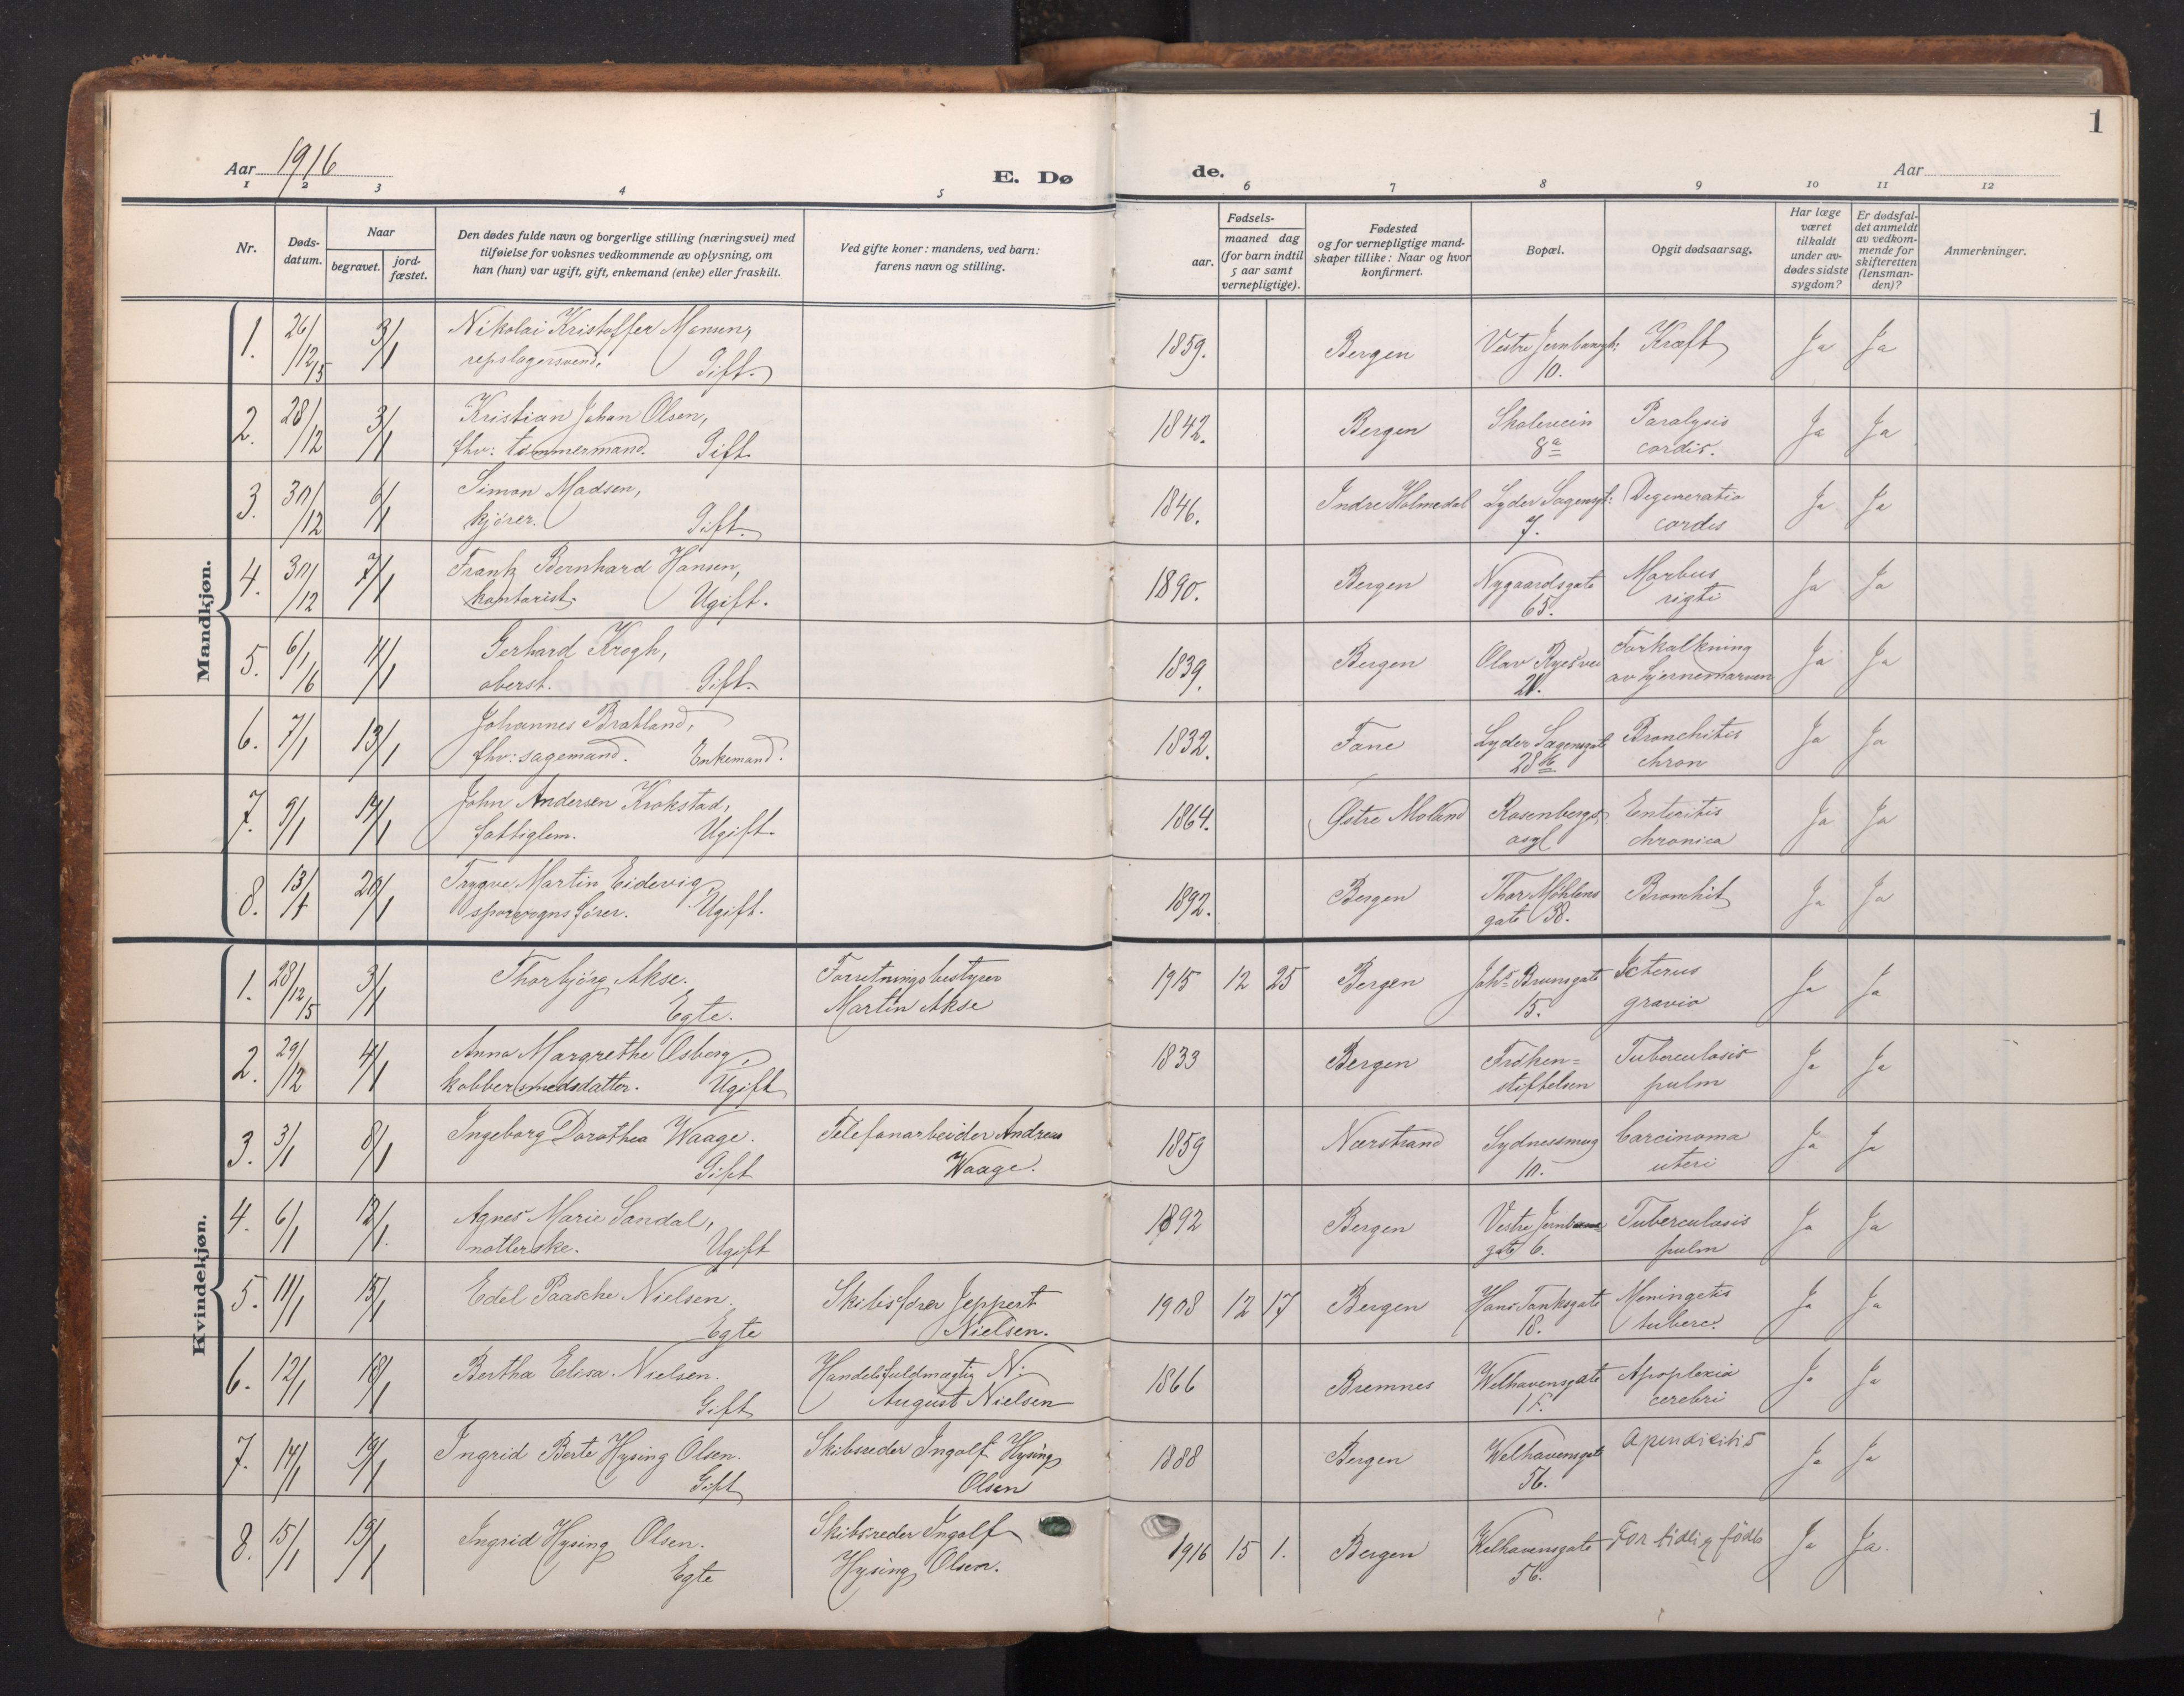 1
Aar 1916
E. Dø
de.
Aar
1 2 3 4 5 6 7 8 9 10 11 12
Nr.
Døds-
datum.
Naar
begravet.
jord-
fæstet.
Den dødes fulde navn og borgerlige stilling (næringsvei) med
tilføielse for voksnes vedkommende av oplysning, om
han (hun) var ugift, gift, enkemand (enke) eller fraskilt.
Ved gifte koner: mandens, ved barn:
farens navn og stilling.
Fødsels-
aar.
maaned dag
(for barn indtil
5 aar samt
vernepligtige).
Fødested
og for vernepligtige mand-
skaper tillike: Naar og hvor
konfirmert.
Bopæl.
Opgit dødsaarsag.
Har læge
været
tilkaldt
under av-
dødes sidste
sygdom?
Er dødsfal-
det anmeldt
av vedkom-
mende for
skifteretten
(lensman-
den)?
Anmerkninger.
Mandkjøn.
1. 26/12 15 3/1 Nikolai Kristoffer Monsen, 1859. Bergen Vestre Jernbanegt: Kræft Ja Ja
repslagersvend. Gift. 10.
2. 28/12 3/1 Kristian Johan Olsen, 1842. Bergen Skoleveien Paralysis Ja Ja
fhv: tømmermand. Gift. 8a cordis.
3. 30/12 6/1 Simon Madsen, 1846. Indre Holmedal Lyder Sagensgt: Degeneratio Ja Ja
kjører. Gift. 7. cordis
4. 30/12 7/1 Frank Bernhard Hansen, 1890. Bergen Nygaardsgate Morbus Ja Ja
kontorist. Ugift. 65.
5. 6/1 16 11/1 Gerhard Krogh, 1839. Bergen Olav Ryesvei Forkalkning Ja Ja
oberst. Gift. av hjernemarven
6. 7/1 13/1 Johannes Bratland, 1832. Fane Lyder Sagensgate Bronchitis Ja Ja
fhv: sagemand. Enkemand. chron
7. 9/1 14/1 John Andersen Krokstad, 1864. Østre Moland Rosenbergs Enteritis Ja Ja
fattiglem. Ugift. asyl chronica
8. 13/1 20/1 Trygve Martin Eidevig, 1892. Bergen Thor Møhlens Bronchit Ja Ja
sporvognsfører. Ugift. gate 38.
Kvindekjøn.
1. 28/12 15 3/1 Thorbjørg Akse. Forretningsbestyrer 1915 12 25 Bergen Johs Brunsgate Icterus Ja Ja
Egte. Martin Akse 15. gravis
2. 29/12 4/1 Anna Margrethe Osberg, 1833 Bergen Frøken= Tuberculosis Ja Ja
kobbersmedsdatter. Ugift stiftelsen pulm
3. 3/1 8/1 Ingeborg Dorothea Waage. Telefonarbeider Andreas 1859 Nærstrand Sydnessmug Carcinoma Ja Ja
Gift Waage. 10. uteri
4. 6/1 12/1 Agnes Marie Sandal, 1892 Bergen Vestre Jernbane Tuberculosis Ja Ja
notterske. Ugift gate 6. pulm
5. 11/1 15/1 Edel Paasche Nielsen. Skibsfører Jeppert 1908 12 17 Bergen Hans Tanksgate Meningetis Ja Ja
Egte Nielsen. 18. tuberc.
6. 12/1 18/1 Bertha Elisa Nielsen. Handelsfuldmægtig N. 1866 Bremnes Welhavensgate Apoplexia Ja Ja
Gift August Nielsen cerebri
7. 14/1 19/1 Ingrid Berte Hysing Olsen. Skibsreder Ingolf Hysing 1888 Bergen Welhavensgate Apendicitis Ja Ja
Gift Olsen 56.
8. 15/1 19/1 Ingrid Hysing Olsen. Skibsreder Ingolf 1916 15 1. Bergen Welhavensgate For tidlig født Ja Ja.
Egte Hysing Olsen. 56.